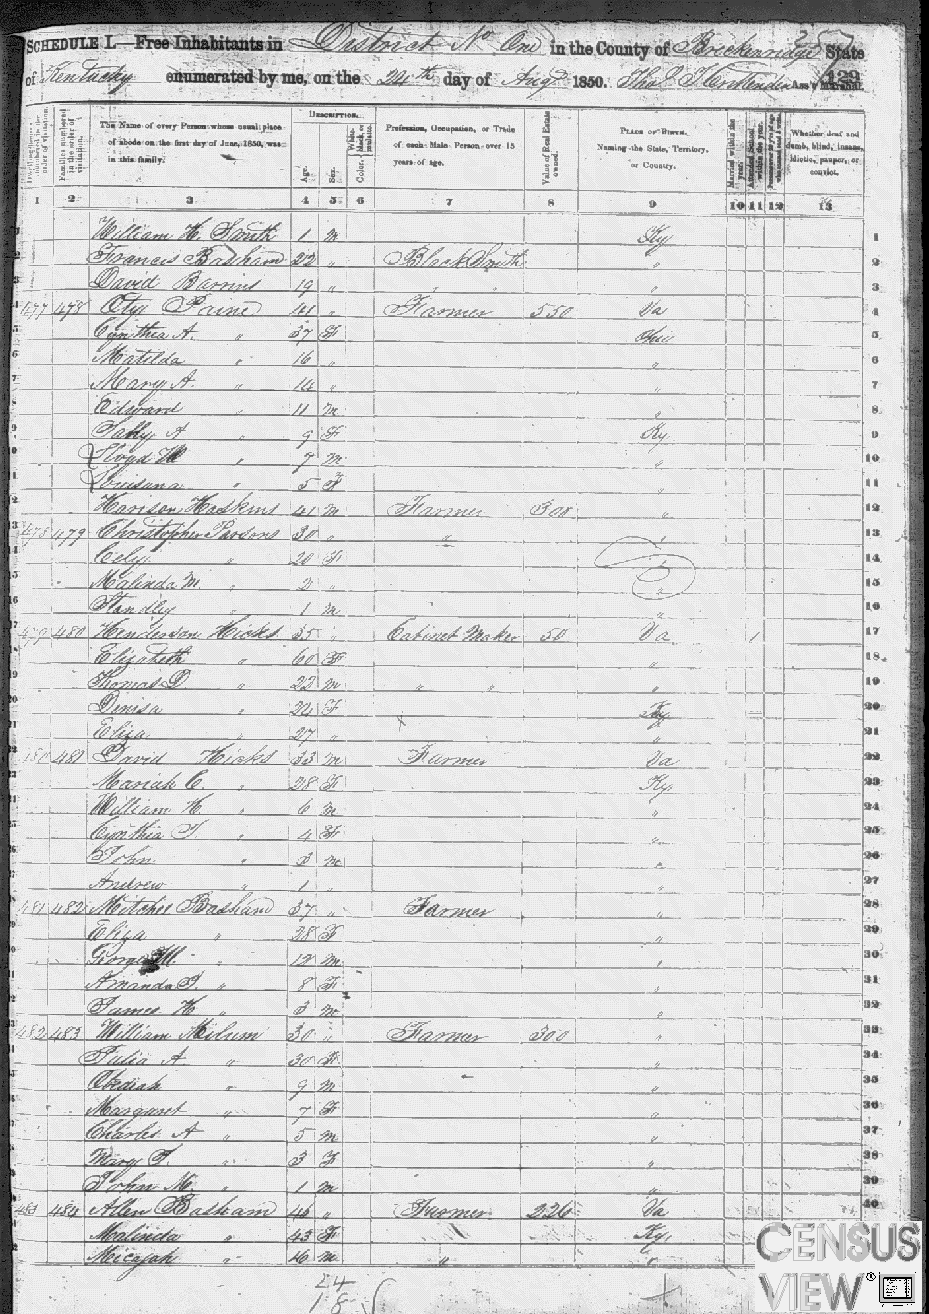 SCHEDULE I.—Free Inhabitants in District No One in the County of Breckenridge State
of Kentucky enumerated by me, on the 24th day of Augt 1850. Ass't Marshal.
129
DESCRIPTION.
The Name of every Person whose usual place of abode on the first day of June, 1850, was in this family.
Age.
Sex.
Profession, Occupation, or Trade of each Male Person over 15 years of age.
Value of Real Estate owned.
PLACE OF BIRTH. Naming the State, Territory, or Country.
Whether deaf and dumb, blind, insane, idiotic, pauper, or convict.
1 2 3 4 5 6 7 8 9 10 11 12 13
William H. Smith 1 m Ky 1
Francis Basham 22 " Black Smith " 2
David 19 " " " " 3
477 478 Paine 41 " Farmer 550 Va 4
Cynthia A. " 37 F Ohio 5
Matilda " 16 " " 6
Mary A. " 14 " " 7
Edward " 11 m " 8
Sally A " 9 F Ky 9
Lloyd " 7 m " 10
Louisana " 5 F " 11
Harison Haskins 41 m Farmer 300 " 12
478 479 Christopher Parsons 30 " " " 13
Cely " 20 F " 14
Malinda M. " 2 " " 15
Standley " 1 m " 16
479 480 Henderson Hicks 35 " Cabinet Maker 50 Va 1 17
Elizabeth " 60 F " 18
Thomas D " 22 m " " " 19
" 24 F Ky 20
Eliza " 27 " " 21
480 481 David Hicks 33 m Farmer Va 22
Mariah C. " 28 F Ky 23
William H " 6 m " 24
Cynthia " 4 F " 25
John " 3 m " 26
Andrew " 1 " " 27
481 482 Basham 37 " Farmer " 28
Eliza " 28 F " 29
George " 12 m " 30
Amanda " 8 F " 31
James H " 3 m " 32
482 483 William Milum 30 " Farmer 300 " 33
Julia A " 30 F " 34
Obediah " 9 m " 35
Margaret " 7 F " 36
Charles A " 5 m " 37
Mary " 3 F " 38
John M " 1 m " 39
483 484 Allen Basham 45 " Farmer 226 Va 40
Malinda " 43 F Ky
Micajah " 16 m " "
24
18
CENSUS
VIEW®